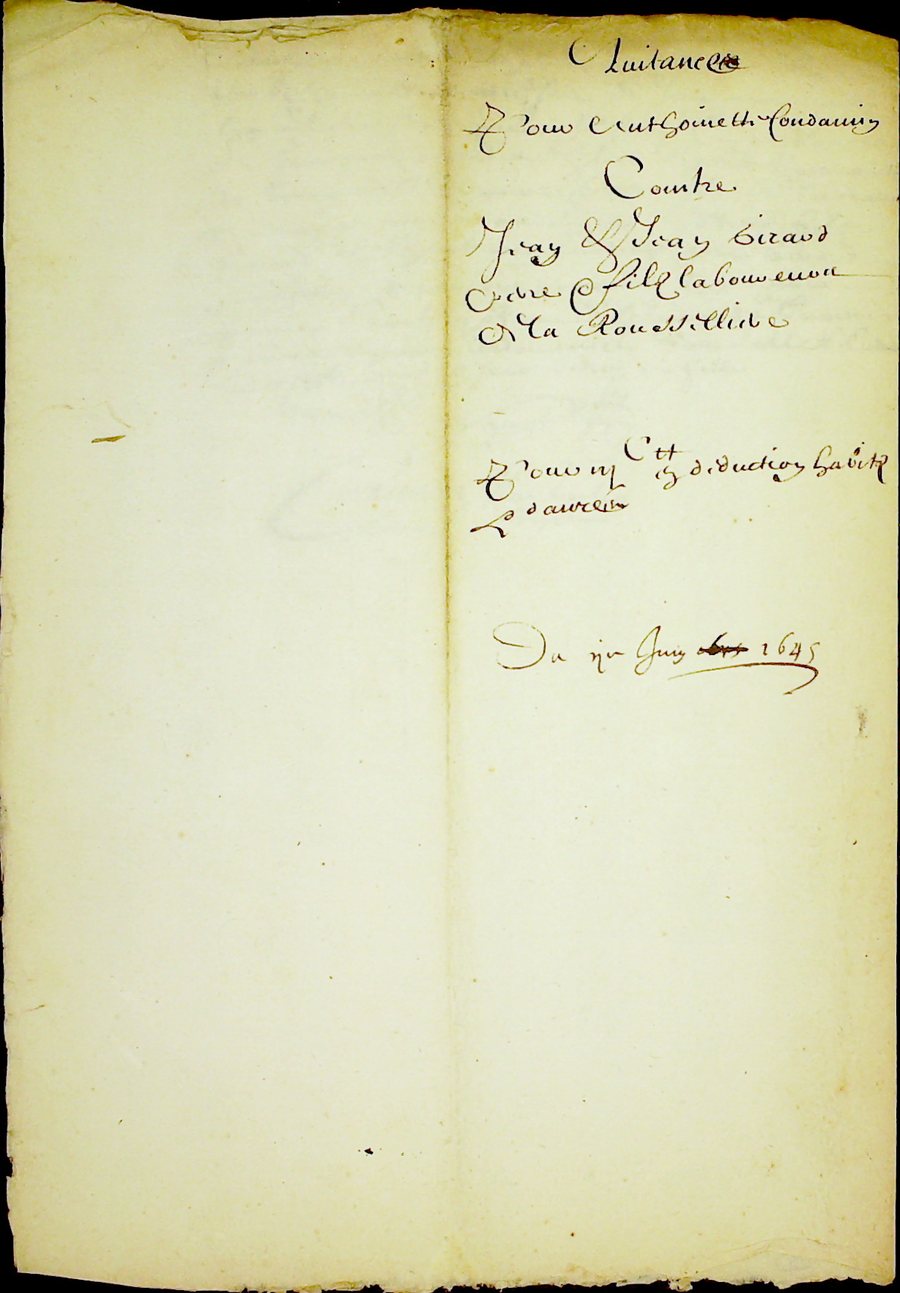 Quitance
Pour Anthoinette Condamin
Contre
Jean & Jean Girard
pere & filz laboureurs
de la Rousselliere
Pour iij C tt en deduction habitz
&
Du Juin 1645